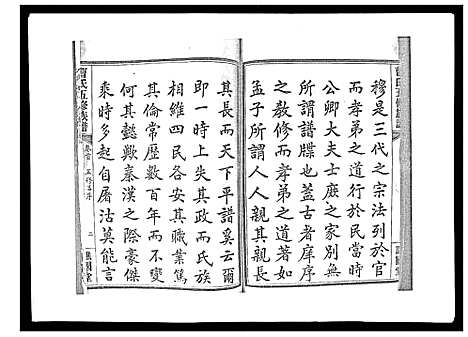 穆是三代之宗法列於官
而孝弟之道行於民當時
公卿大夫士庶之家別無
所謂譜牒也蓋古者庠序
之教修而孝弟之道著如
孟子所謂人人親其親長
其長而天下平譜奚云爾
即一時上失其政而氏族
相維四民各安其職業篤
其倫常歷數百年而不變
何其懿歟秦漢之際豪傑
乘時多起自屠沽莫能言
曹氏五修族譜
卷首
五修
序
二